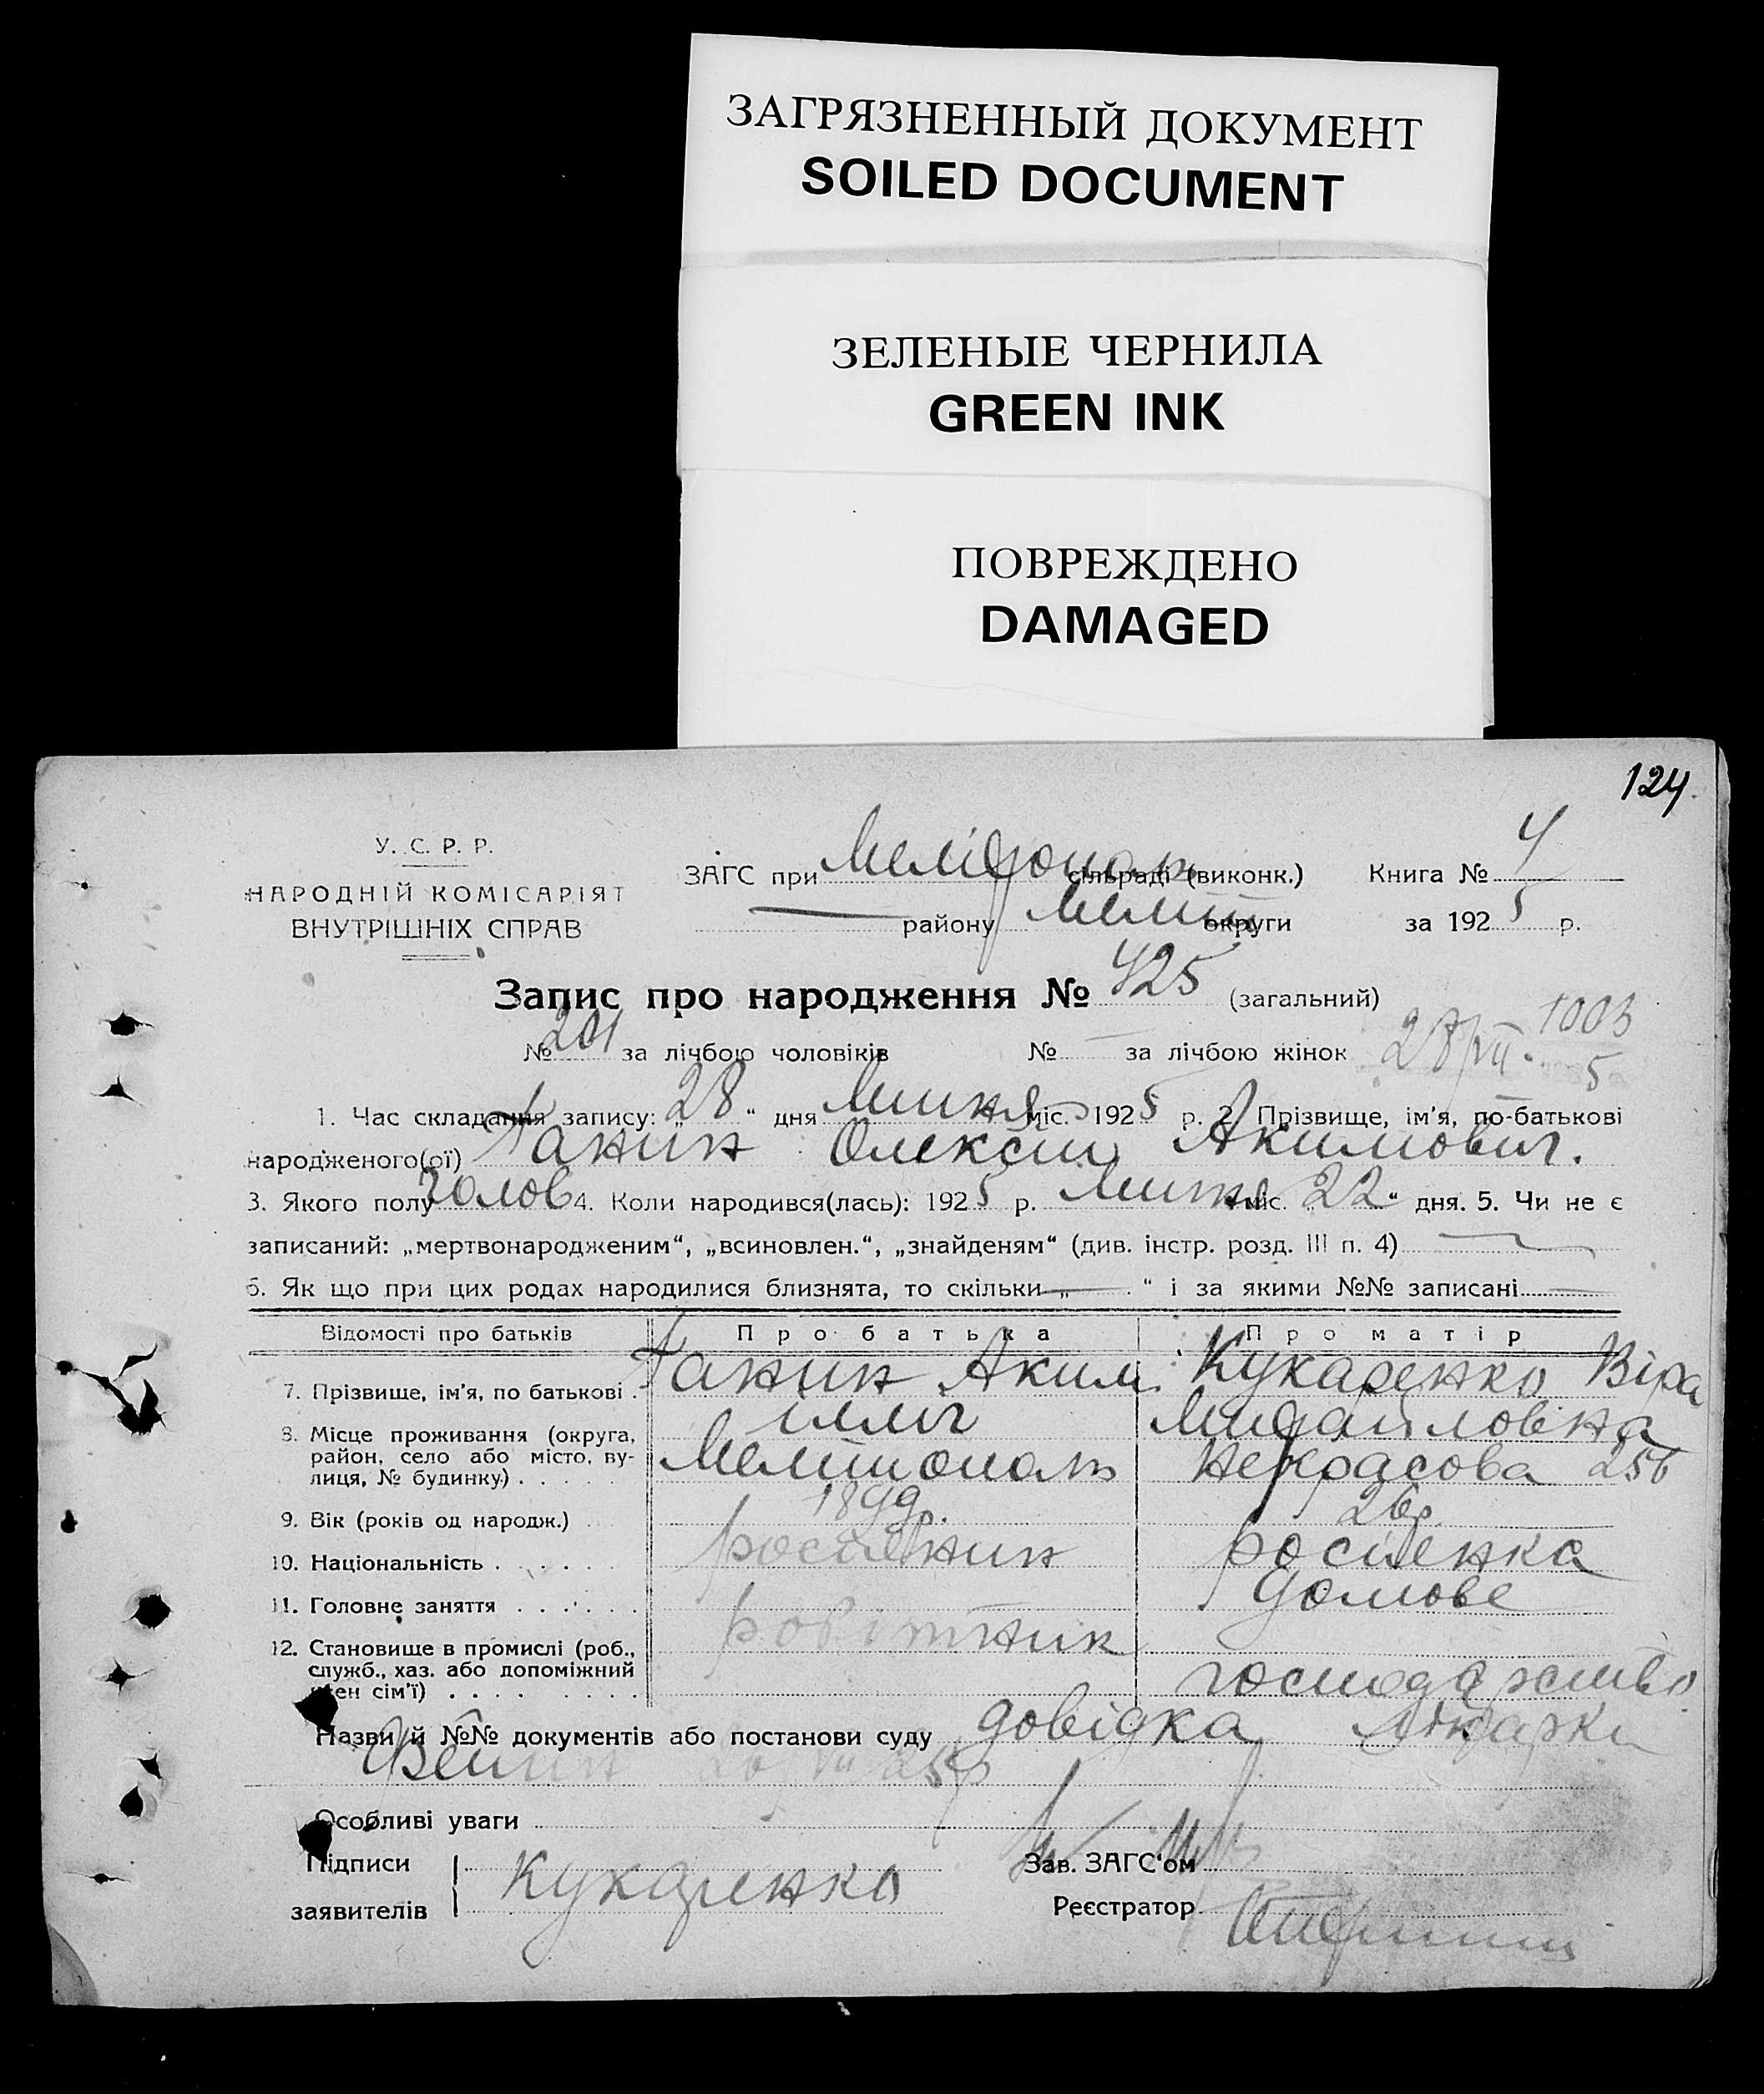 ЗАГРЯЗНЕННЫЙ ДОКУМЕНТ
SOILED DOCUMENT
ЗЕЛЕНЫЕ ЧЕРНИЛА
GREEN INK
ПОВРЕЖДЕНО
DAMAGED
124
У. С. Р. Р.
НАРОДНІЙ КОМІСАРІЯТ
ВНУТРІШНІХ СПРАВ
ЗАГС при сільраді (виконк.) Книга № 4
району Меліт округи за 1925 р.
Запис про народження № 425 (загальний)
№ 201 за лічбою чоловіків № — за лічбою жінок 28/VII. 1003
5
1. Час складання запису: „28“ дня Липня міс. 1925 р. 2. Прізвище, ім'я, по-батькові
народженого(ої) Ганин Олексій Акимович.
3. Якого полу чолов 4. Коли народився(лась): 1925 р. Липня міс. 22“ дня. 5. Чи не є
записаний: „мертвонародженим“, „всиновлен.“, „знайденям“ (див. інстр. розд. III п. 4) —
6. Як що при цих родах народилися близнята, то скільки „ — “ і за якими №№ записані —
Відомості про батьків Про батька Про матір
7. Прізвище, ім'я, по батькові Ганин Аким Ілліч Кукаренко Віра Михайловна
8. Місце проживання (округа, район, село або місто, вулиця, № будинку) Мелітополь Некрасова 256
9. Вік (років од народж.) 1899р. 26р.
10. Національність росіянин росіянка
11. Головне заняття домове
12. Становище в промислі (роб., служб., хаз. або допоміжний член сім'ї) робітник господарство
Назви й №№ документів або постанови суду довідка лікарки
Особливі уваги
Підписи
заявителів Кукаренко
Зав. ЗАГС'ом
Реєстратор